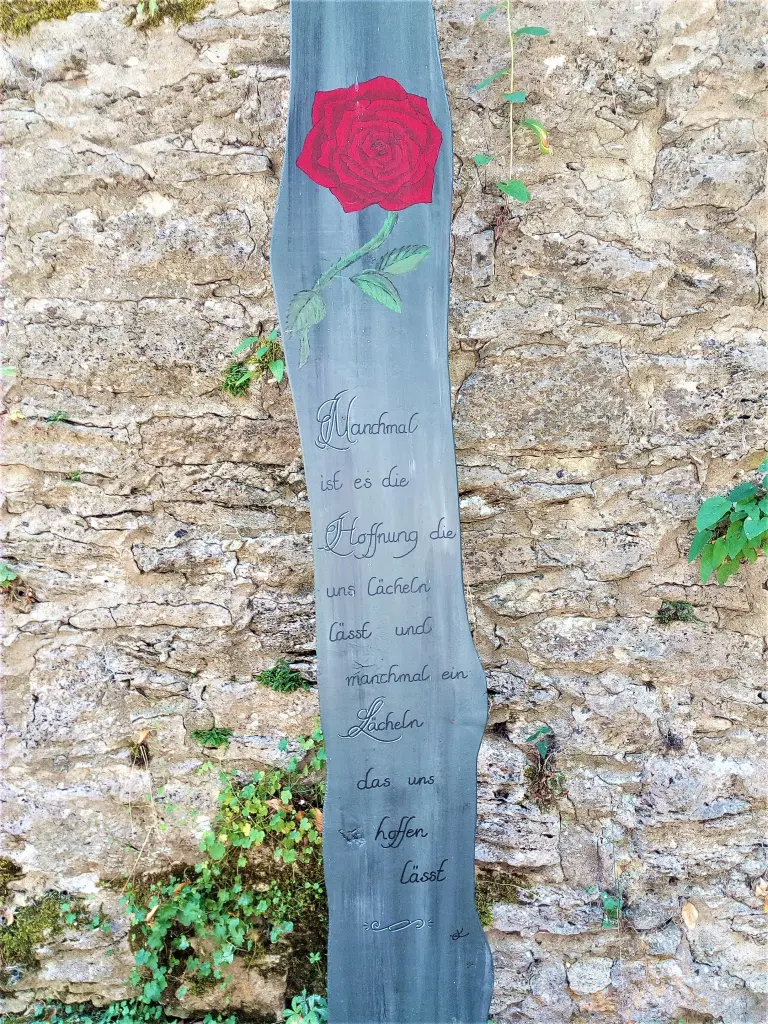 Manchmal
ist es die
Hoffnung die
uns lächeln
lässt und
manchmal ein
Lächeln
das uns
hoffen
lässt